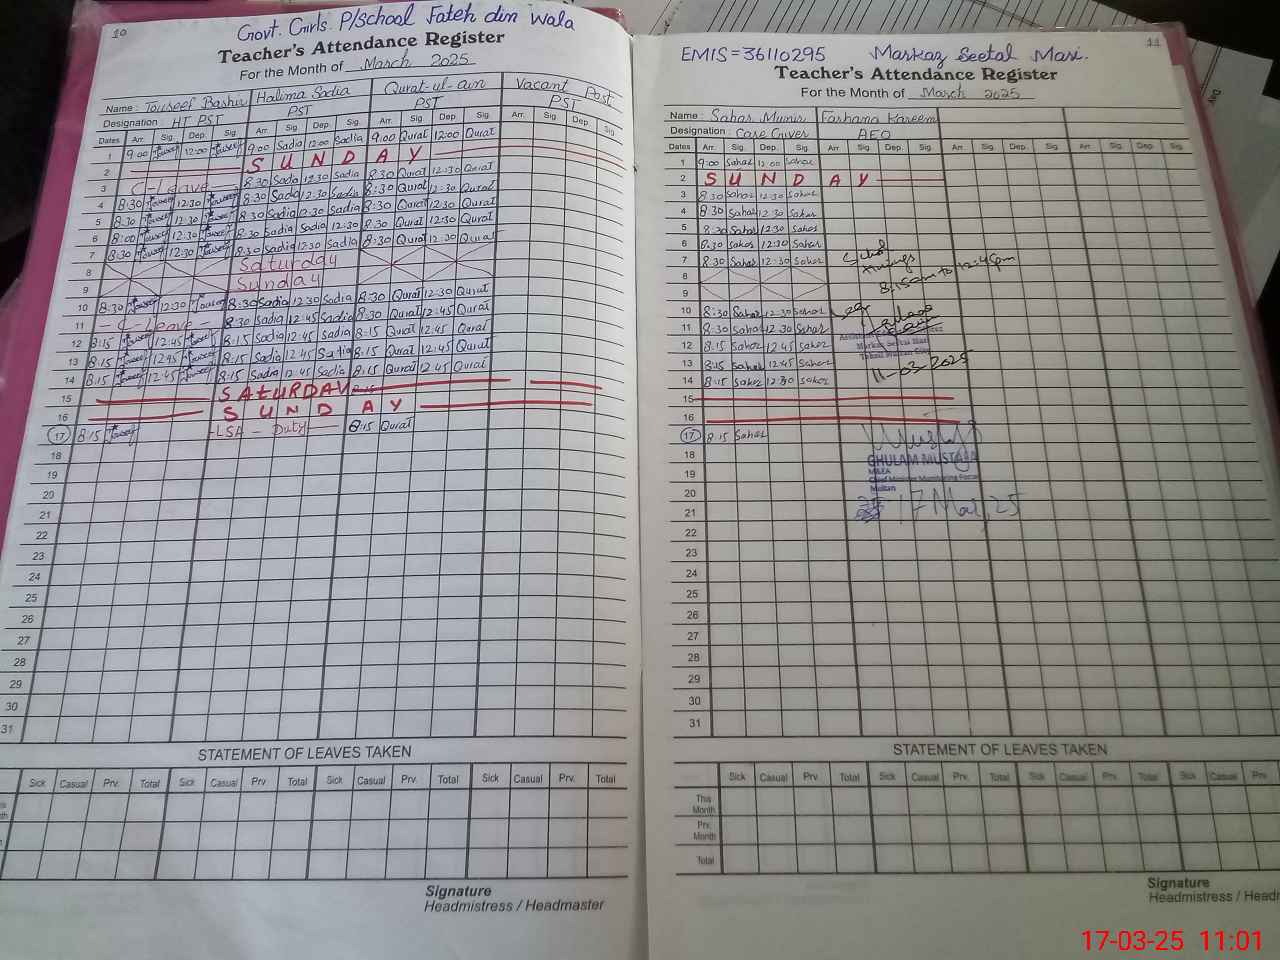 10
Govt. Girls. P/School Fateh din Wala
Teacher's Attendance Register
For the Month of March 2025
Name : Touseef Bashir Halima Sadia Qurat-ul-ain Vacant Post
Designation : HT PST PST PST PST
Dates Arr. Sig. Dep. Sig. Arr. Sig. Dep. Sig. Arr. Sig. Dep. Sig. Arr. Sig. Dep. Sig.
1 9:00 Touseef 12:00 Touseef 9:00 Sadia 12:00 Sadia 9:00 Qurat 12:00 Qurat
2 SUNDAY
3 C-Leave 8:30 Sadia 12:30 Sadia 8:30 Qurat 12:30 Qurat
4 8:30 Touseef 12:30 Touseef 8:30 Sadia 12:30 Sadia 8:30 Qurat 12:30 Qurat
5 8:30 Touseef 12:30 Touseef 8:30 Sadia 12:30 Sadia 8:30 Qurat 12:30 Qurat
6 8:00 Touseef 12:30 Touseef 8:30 Sadia 12:30 Sadia 8:30 Qurat 12:30 Qurat
7 8:30 Touseef 12:30 Touseef 8:30 Sadia 12:30 Sadia 8:30 Qurat 12:30 Qurat
8 Saturday
9 Sunday
10 8:30 Touseef 12:30 Touseef 8:30 Sadia 12:30 Sadia 8:30 Qurat 12:30 Qurat
11 - C-Leave - 8:30 Sadia 12:45 Sadia 8:30 Qurat 12:45 Qurat
12 8:15 Touseef 12:45 Touseef 8:15 Sadia 12:45 Sadia 8:15 Qurat 12:45 Qurat
13 8:15 Touseef 12:45 Touseef 8:15 Sadia 12:45 Sadia 8:15 Qurat 12:45 Qurat
14 8:15 Touseef 12:45 Touseef 8:15 Sadia 12:45 Sadia 8:15 Qurat 12:45 Qurat
15 SATURDAY
16 SUNDAY
17 8:15 Touseef -LSA - Duty- 8:15 Qurat
18
19
20
21
22
23
24
25
26
27
28
29
30
31
STATEMENT OF LEAVES TAKEN
Sick Casual Prv. Total Sick Casual Prv. Total Sick Casual Prv. Total Sick Casual Prv. Total
Signature
Headmistress / Headmaster
11
EMIS=36110295 Markaz Seetal Mari.
Teacher's Attendance Register
For the Month of March 2025
Name : Sahar Munir Farhana Kareem
Designation : Care Giver AEO
Dates Arr. Sig. Dep. Sig. Arr. Sig. Dep. Sig. Arr. Sig. Dep. Sig. Arr. Sig. Dep. Sig.
1 9:00 Sahar 12:00 Sahar
2 SUNDAY
3 8:30 Sahar 12:30 Sahar
4 8:30 Sahar 12:30 Sahar
5 8:30 Sahar 12:30 Sahar
6 8:30 Sahar 12:30 Sahar
7 8:30 Sahar 12:30 Sahar
8
9
10 8:30 Sahar 12:30 Sahar
11 8:30 Sahar 12:30 Sahar
12 8:15 Sahar 12:45 Sahar
13 8:15 Sahar 12:45 Sahar
14 8:15 Sahar 12:30 Sahar
15
16
17 8:15 Sahar
18
19
20
21
22
23
24
25
26
27
28
29
30
31
School
timings
8:15am to 12:45pm
Markaz Seetal Mari
11-03-2025
GHULAM MUSTAFA
MEA
Chief Minister Monitoring Force
Multan
17 Mar, 25
STATEMENT OF LEAVES TAKEN
Sick Casual Prv. Total Sick Casual Prv. Total Sick Casual Prv. Total Sick Casual Prv.
This Month
Prv. Month
Total
Signature
Headmistress / Head
17-03-25 11:01